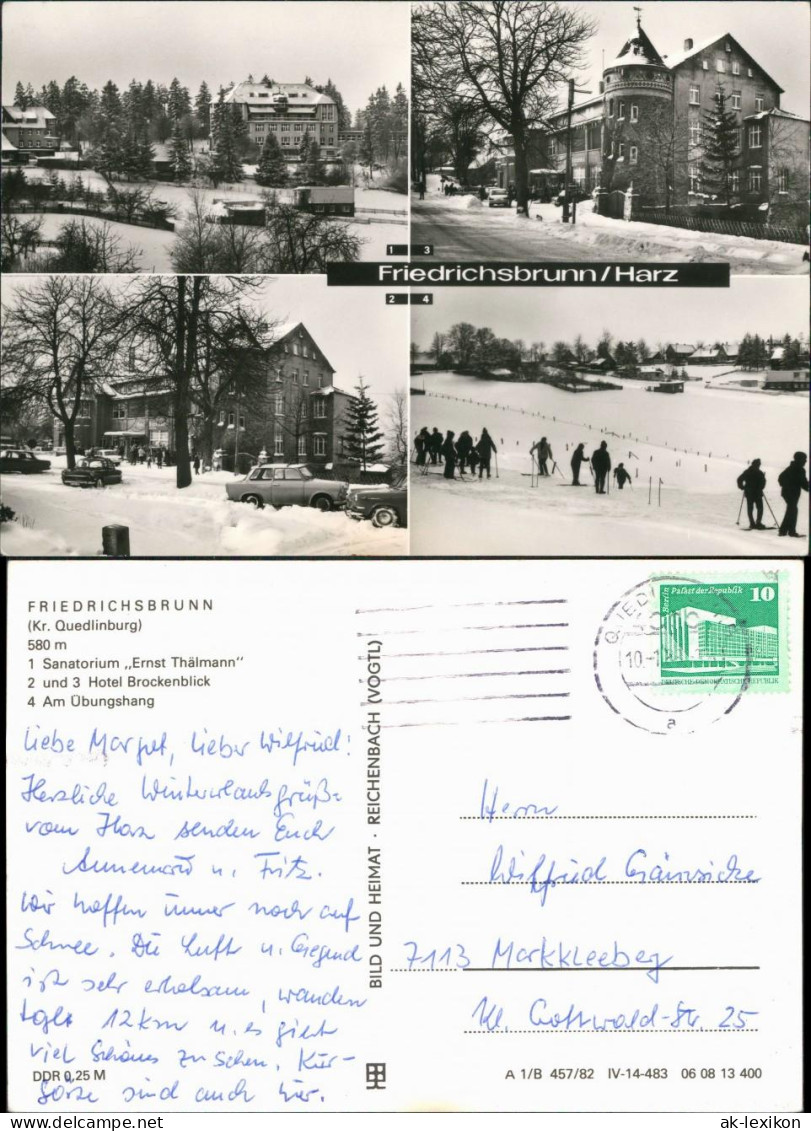 1
3
Friedrichsbrunn/Harz
2
4
FRIEDRICHSBRUNN
(Kr. Quedlinburg)
580 m
1 Sanatorium „Ernst Thälmann"
2 und 3 Hotel Brockenblick
4 Am Übungshang
Liebe Margret, lieber Wilfried!
Herzliche Winterurlaubsgrüße
vom Harz senden Euch
Annemarie u. Fritz.
Wir hoffen immer noch auf
Schnee. Die Luft u. Gegend
ist sehr erholsam, wandern
tägl. 12 km u. es gibt
viel Schönes zu sehen. Kur-
sind auch hier.
DDR 0,25 M
BILD UND HEIMAT · REICHENBACH (VOGTL)
Palast der Republik 10
Berlin
DEUTSCHE DEMOKRATISCHE REPUBLIK
a
Herrn
Wilfried
7113 Markkleeberg
Kl. Gottwald-Str. 25
A 1/B 457/82 IV-14-483 06 08 13 400
ak-lexikon